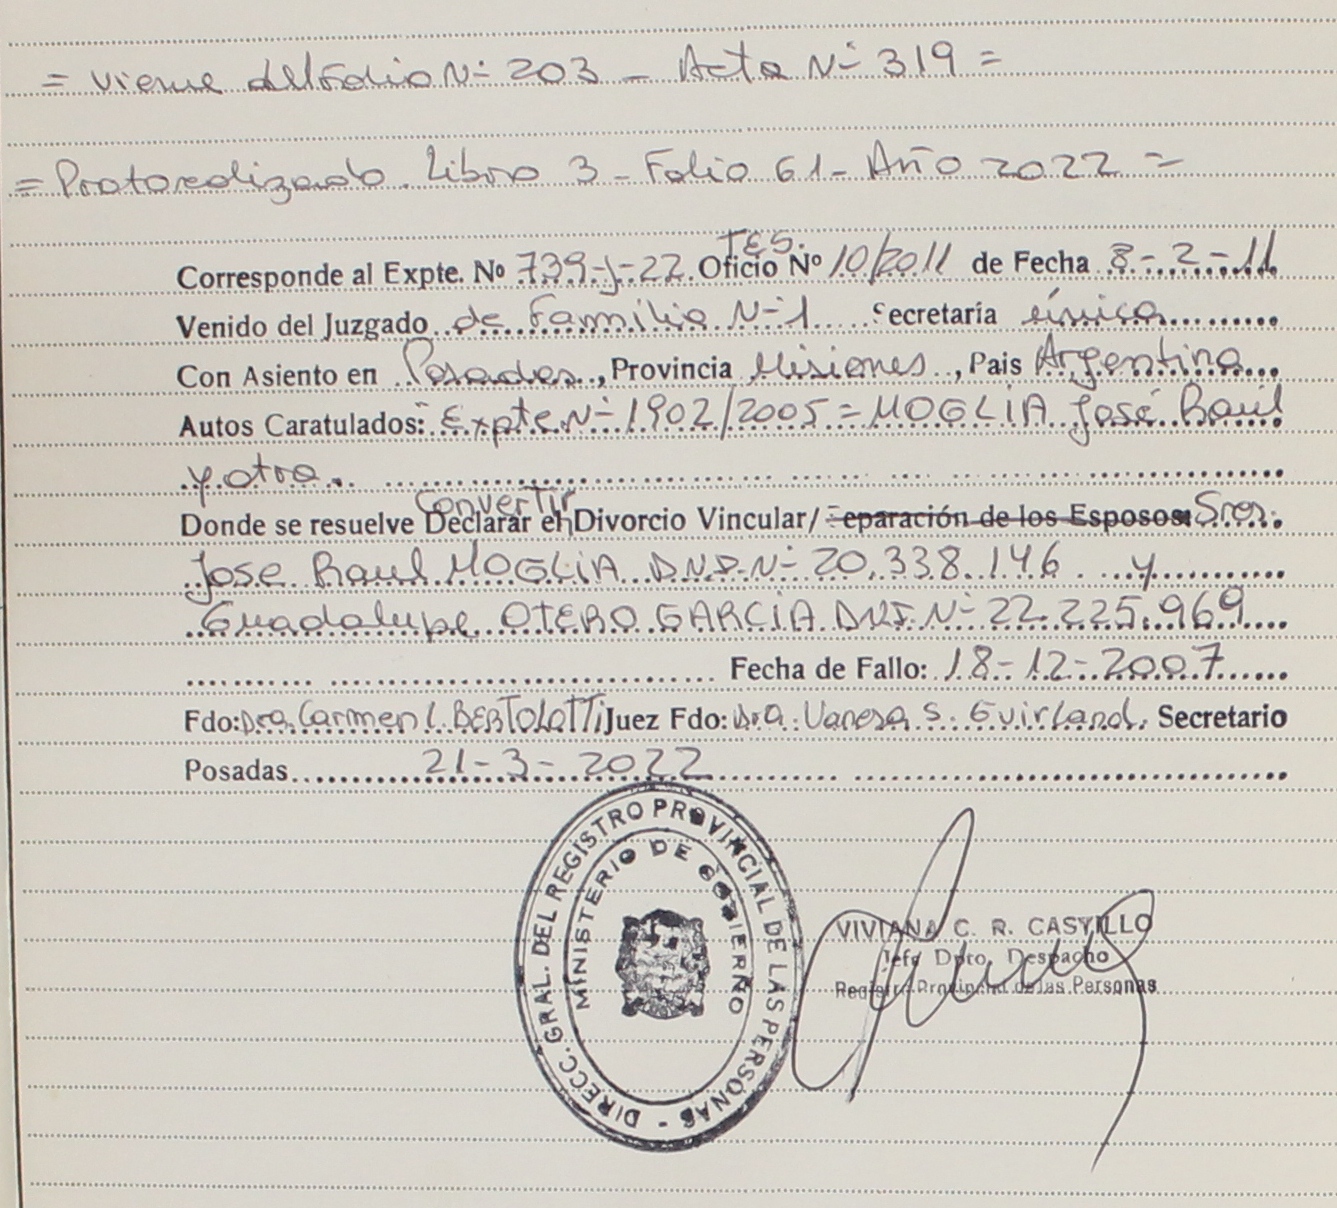 = Viene del Folio Nº 203 - Acta Nº 319 =
= Protocolizado. Libro 3 - Folio 61 - Año 2022 =
TES.
Corresponde al Expte. Nº 739-J-22. Oficio Nº 10/2011 de Fecha 8-2-11
Venido del Juzgado de Familia Nº 1 Secretaría única
Con Asiento en Posadas, Provincia Misiones, Pais Argentina
Autos Caratulados: Expte Nº 1902/2005 = MOGLIA José Raúl
y otra.
Convertir
Donde se resuelve Declarar en Divorcio Vincular/ Separación de los Esposos: Sres.
Jose Raul MOGLIA D.N.I. Nº 20.338.146 y
Guadalupe OTERO GARCÍA DNI. Nº 22.225.969
Fecha de Fallo: 18-12-2007
Fdo: Dra. Carmen C. BERTOLOTTI Juez Fdo: Dra. Vanesa S. Guirland. Secretario
Posadas 21-3-2022
DIRECC. GRAL. DEL REGISTRO PROVINCIAL DE LAS PERSONAS -
MINISTERIO DE GOBIERNO
VIVIANA C. R. CASTILLO
Jefe Dpto. Despacho
Registro Provincial de las Personas